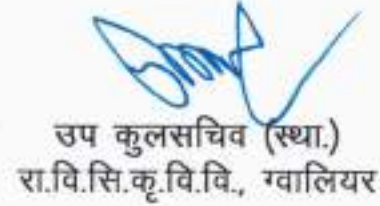 उप कुलसचिव (स्था.)
रा.वि.सि.कृ.वि.वि., ग्वालियर